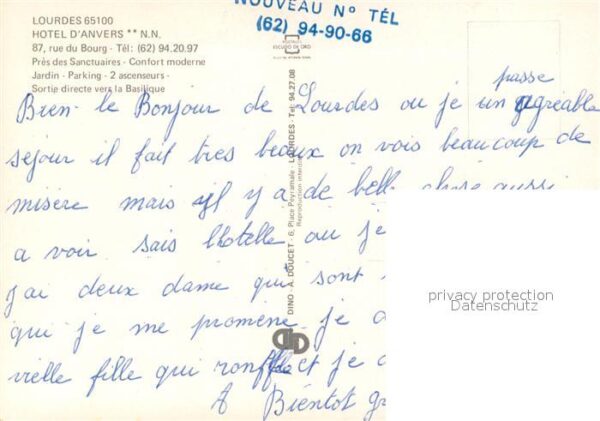 LOURDES 65100
HOTEL D'ANVERS ** N.N.
87, rue du Bourg - Tél: (62) 94.20.97
Près des Sanctuaires - Confort moderne
Jardin - Parking - 2 ascenseurs -
Sortie directe vers la Basilique
NOUVEAU N° TÉL
(62) 94-90-66
ESCUDO DE ORO
DINO - A. DOUCET - 6, Place Peyramale - LOURDES - Tel: 94.27.08
Reproduction interdite
passe
Bien le Bonjour de Lourdes ou je un agréable
séjour il fait tres beaux on vois beaucoup de
misère mais il y a de bell chose aussi
a voir sais l'hotelle ou je
j'ai deux dame qui sont
qui je me promène je
vielle fille qui ronfle et je
A Bientot
privacy protection
Datenschutz